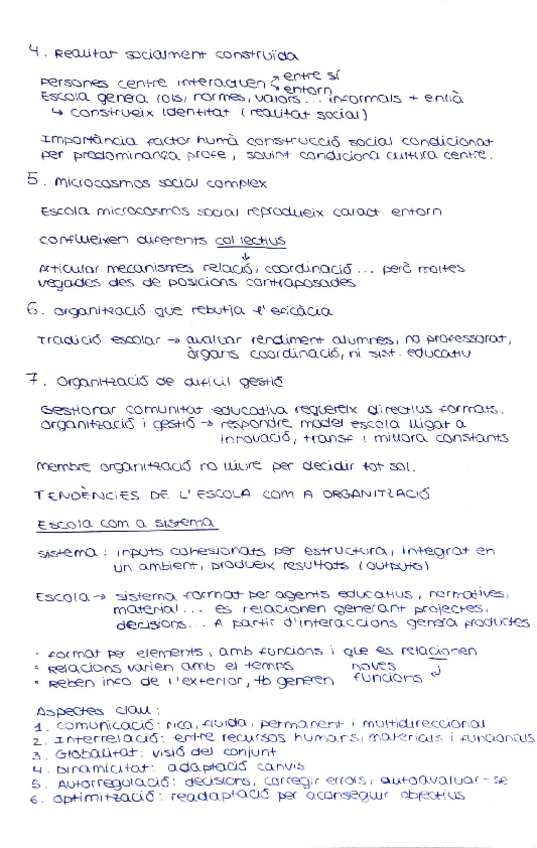 4. Realitat socialment construïda
Persones centre interactuen entre sí
entorn
Escola genera rols, normes, valors... informals + enllà
↳ construeix identitat (realitat social)
Importància factor humà construcció social condicionat
per predominança profe, sovint condiciona cultura centre.
5. Microcosmos social complex
Escola microcosmos social reprodueix caract. entorn
conflueixen diferents col·lectius
↓
Articular mecanismes relació, coordinació... però moltes
vegades des de posicions contraposades
6. Organització que rebutja l'eficàcia
Tradició escolar → avaluar rendiment alumnes, no professorat,
òrgans coordinació, ni sist. educatiu
7. Organització de difícil gestió
Gestionar comunitat educativa requereix directius formats.
organització i gestió → respondre model escola lligat a
innovació, transf i millora constants
Membre organització no lliure per decidir tot sol.
TENDÈNCIES DE L'ESCOLA COM A ORGANITZACIÓ
Escola com a sistema
Sistema: inputs cohesionats per estructura, integrat en
un ambient, produeix resultats (outputs)
Escola → sistema format per agents educatius, normatives,
material... es relacionen generant projectes,
decisions... A partir d'interaccions genera productes
· Format per elements, amb funcions i que es relacionen
· Relacions varien amb el temps noves
· Reben info de l'exterior, tb generen funcions
Aspectes clau:
1. Comunicació: rica, fluida, permanent i multidireccional
2. Interrelació: entre recursos humans, materials i funcionals
3. Globalitat: visió del conjunt
4. Dinamicitat: adaptació canvis
5. Autorregulació: decisions, corregir errors, autoavaluar-se
6. Optimització: readaptació per aconseguir objectius